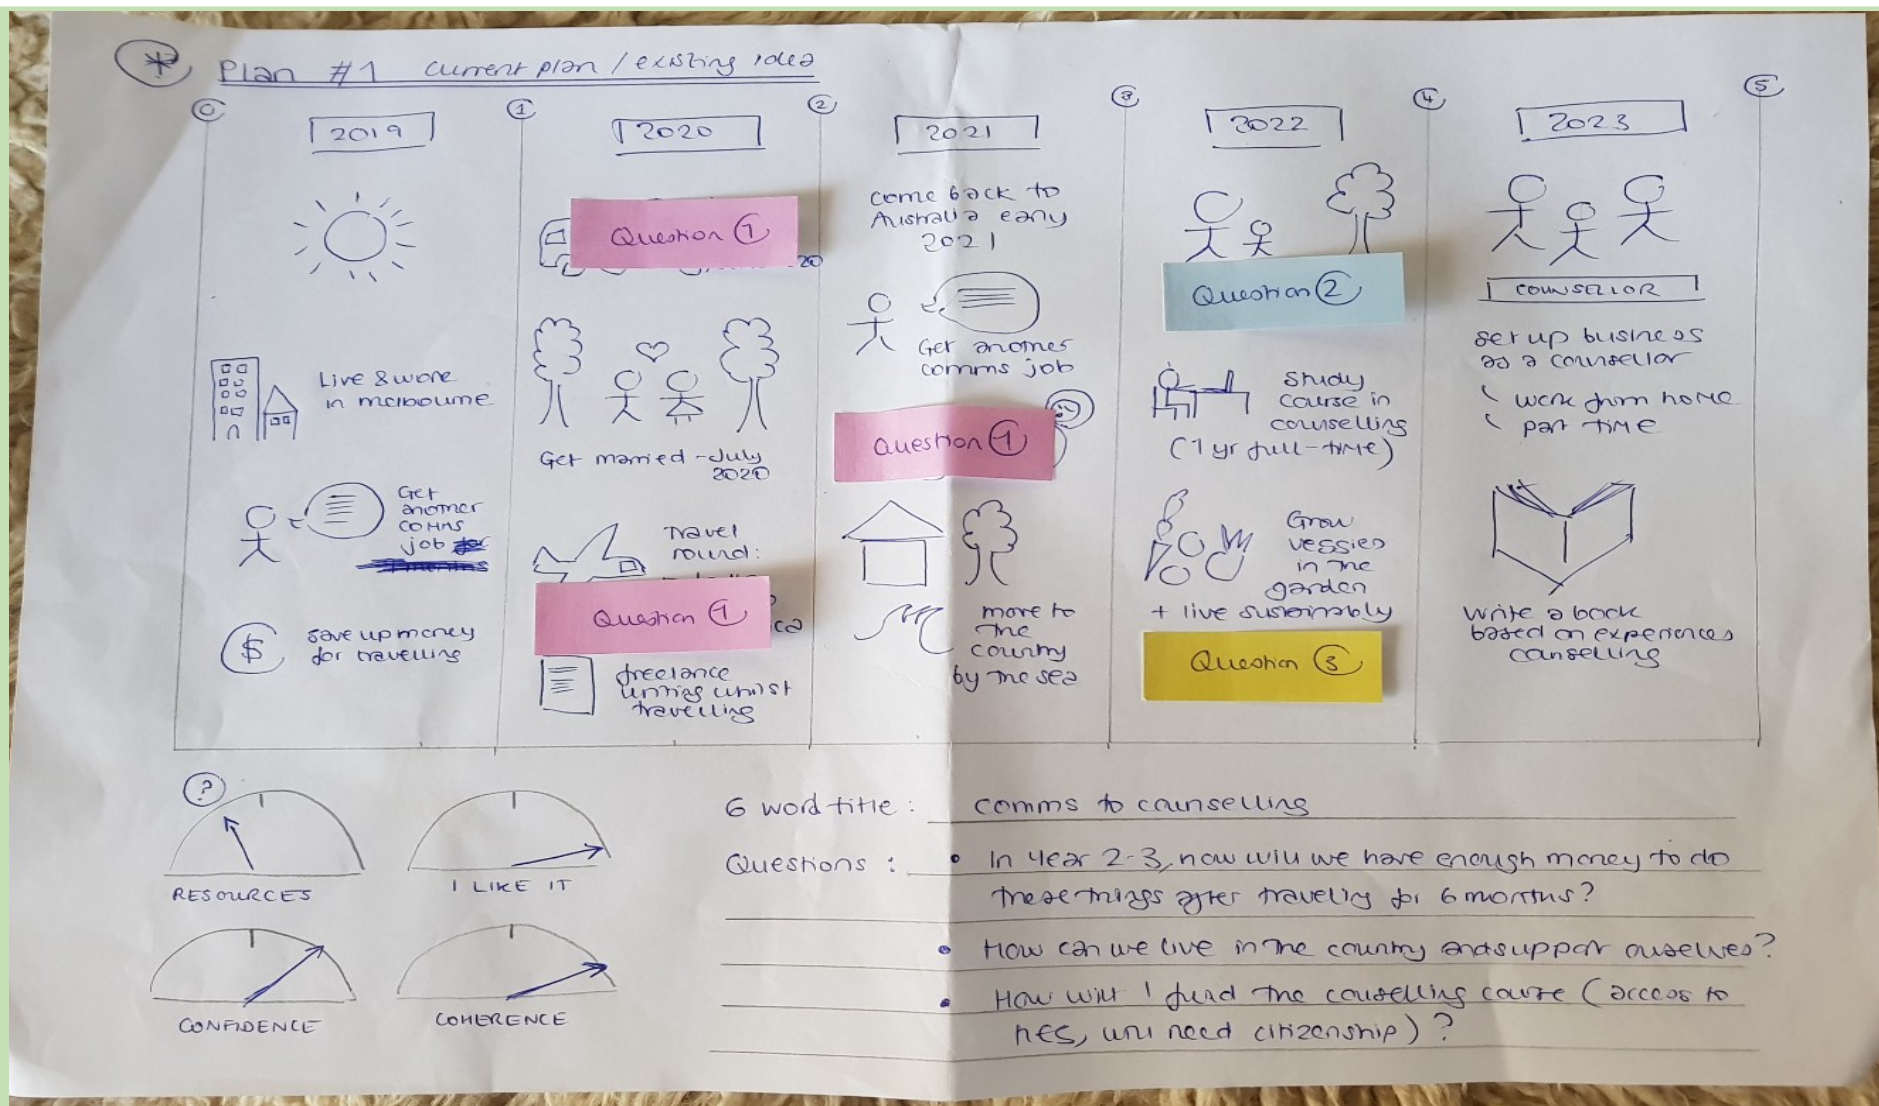 Plan #1 current plan / existing idea
0
1
2
3
4
5
2019
Live & work
in melbourne
Get
another
comms
job
$
save up money
for travelling
2020
Question 1
2020
Get married - July
2020
Travel
round:
Question 1
ca
freelance
writing whilst
travelling
2021
come back to
Australia early
2021
Get another
comms job
Question 1
move to
the
country
by the sea
2022
Question 2
Study
course in
counselling
(1 yr full-time)
Grow
veggies
in the
garden
+ live sustainably
Question 3
2023
COUNSELLOR
set up business
as a counsellor
work from home
part time
write a book
based on experiences
counselling
?
RESOURCES
I LIKE IT
CONFIDENCE
COHERENCE
6 word title: comms to counselling
Questions: • In year 2-3, how will we have enough money to do
these things after traveling for 6 months?
• How can we live in the country and support ourselves?
• How will I fund the counselling course (access to
hes, will need citizenship)?